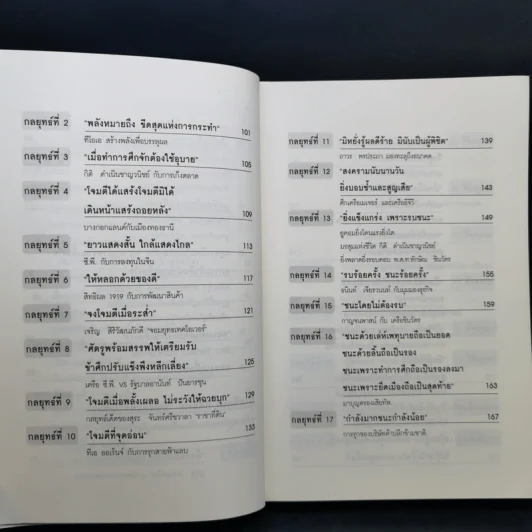 กลยุทธ์ที่ 2 "พลังหมายถึง ขีดสุดแห่งการกระทำ" 101
ทีโอเอ สร้างพลังเพื่อบรรลุผล
กลยุทธ์ที่ 3 "เมื่อทำการศึกจักต้องใช้อุบาย" 105
กิติ ดำเนินชาญวนิชย์ กับการเก็งตลาด
กลยุทธ์ที่ 4 "โจมตีได้แสร้งโจมตีมิได้
เดินหน้าแสร้งถอยหลัง" 109
บางกอกแลนด์กับเมืองทองธานี
กลยุทธ์ที่ 5 "ยาวแสดงสั้น ใกล้แสดงไกล" 113
ซี.พี. กับการลงทุนในจีน
กลยุทธ์ที่ 6 "ให้หลอกด้วยของดี" 117
สิทธิผล 1919 กับการพัฒนาสินค้า
กลยุทธ์ที่ 7 "จงโจมตีเมื่อระส่ำ" 121
เจริญ สิริวัฒนภักดี "จอมยุทธเทคโอเวอร์"
กลยุทธ์ที่ 8 "ศัตรูพร้อมสรรพให้เตรียมรับ
ข้าศึกปรับแข็งพึงหลีกเลี่ยง" 125
เครือ ซี.พี. VS รัฐบาลอานันท์ ปันยารชุน
กลยุทธ์ที่ 9 "โจมตีเมื่อพลั้งเผลอ ไม่ระวังให้ฉวยบุก" 129
กลยุทธ์เด็ดของสุระ จันทร์ศรีชวาลา "ราชาที่ดิน"
กลยุทธ์ที่ 10 "โจมตีที่จุดอ่อน" 135
ทีเอ ออเร้นจ์ กับการรุกสายฟ้าแลบ
กลยุทธ์ที่ 11 "มิหยั่งรู้ผลดีร้าย มินับเป็นผู้พิชิต" 139
กลยุทธ์ที่ 12 "สงครามนับนานวัน
ยิ่งบอบช้ำและสูญเสีย" 143
กลยุทธ์ที่ 13 "ยิ่งแข็งแกร่ง เพราะรบชนะ" 149
ยูคอมยิ่งโตนแรงยิ่งโต
บรสุมแห่งชีวิต กิติ ดำเนินชาญวนิชย์
กลยุทธ์ที่ 14 "รบร้อยครั้ง ชนะร้อยครั้ง" 155
ธนินท์ เจียรวนนท์ กับมุมมองธุรกิจ
กลยุทธ์ที่ 15 "ชนะโดยไม่ต้องรบ" 159
กาญจนพาสน์ กับ เครือชินวัตร
กลยุทธ์ที่ 16 "ชนะด้วยเล่ห์เพทุบายถือเป็นยอด
ชนะด้วยลิ้นถือเป็นรอง
ชนะเพราะทำการศึกถือเป็นรองลงมา
ชนะเพราะยึดเมืองถือเป็นสุดท้าย" 163
มาบุญครองเสียทัพ
กลยุทธ์ที่ 17 "กำลังมากชนะกำลังน้อย" 167
การรุกของบริษัทค้าปลีกข้ามชาติ